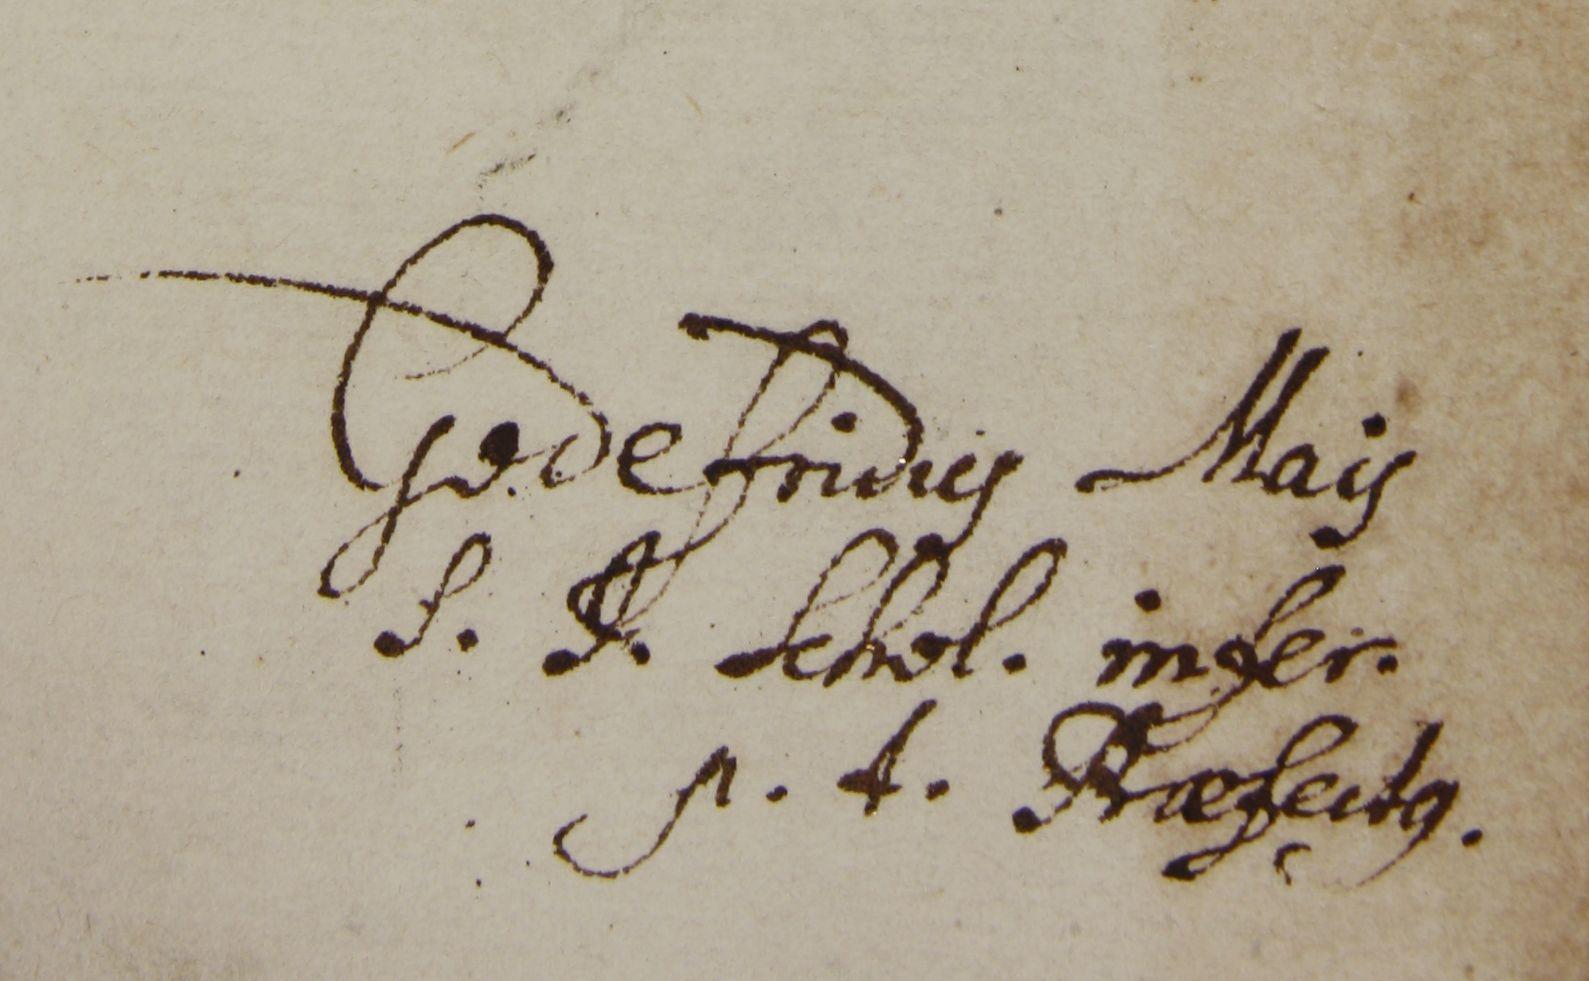 Godefridus Maij
S. J. Schol. infer.
p. t. Præfectus.